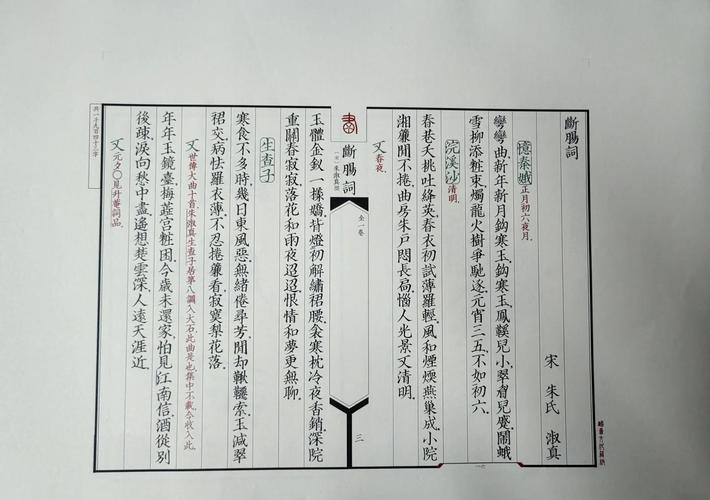 斷腸詞
宋 朱氏 淑真
憶秦娥 正月初六夜月
彎彎曲新年新月鈎寒玉鈎寒玉鳳鞋兒小翠眉兒蹙鬧蛾
雪柳添粧束燭龍火樹爭馳逐元宵三五不如初六
浣溪沙 清明
春巷夭桃吐絳英春衣初試薄羅輕風和煙煖燕巢成小院
湘簾閒不捲曲房朱戶悶長扃惱人光景又清明
又 春夜
斷腸詞
全一卷
三
玉體金釵一樣嬌背燈初解繡裙腰衾寒枕冷夜香銷深院
重關春寂寂落花和雨夜迢迢恨情和夢更無聊
生查子
寒食不多時幾日東風惡無緒倦尋芳閒却鞦韆索玉減翠
裙交病怯羅衣薄不忍捲簾看寂寞梨花落
又 世傳大曲十首朱淑真生查子居第八調入大石此曲是也集中不載今收入此
年年玉鏡臺梅蕊宮粧困今歲未還家怕見江南信酒從別
後疎淚向愁中盡遙想楚雲深人遠天涯近
又 元夕〇見升菴詞品